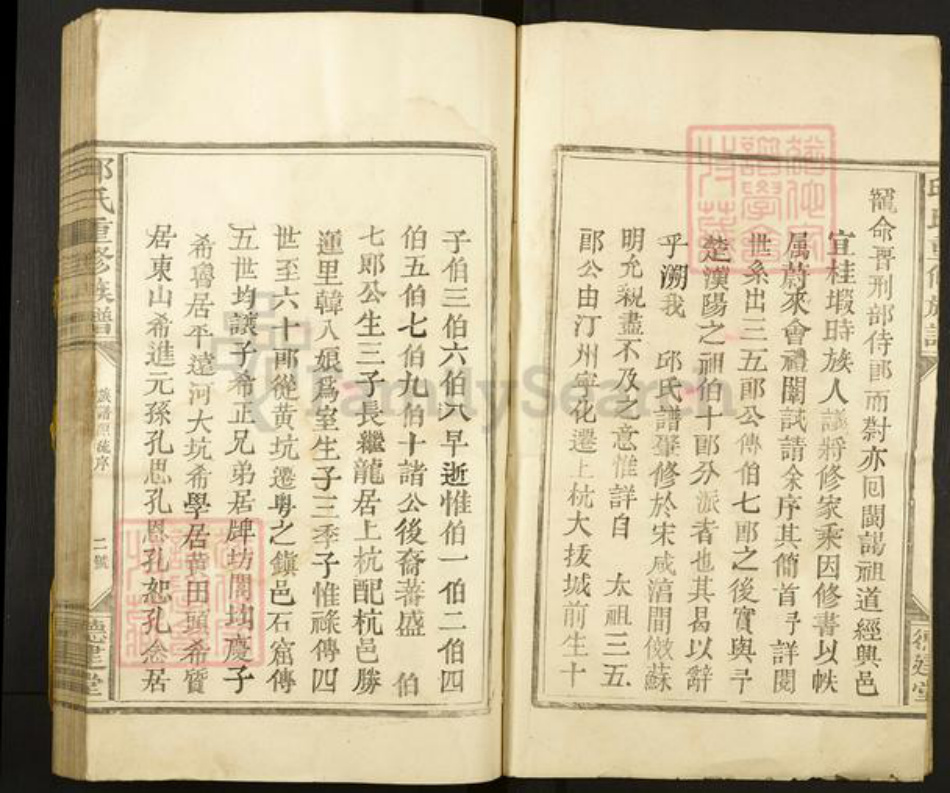 寵命晋刑部侍郎而尉亦囘閩謁祖道經興邑
宣桂瑕時族人議將修家乘因修書以帙
属蔚來會禮闈試請余序其簡首予詳閲
世系出三五郎公傳伯七郎之後實與予
楚漢陽之祖伯十郎分派者也其曷以辭
乎溯我 邱氏譜肇修於宋咸淳間倣蘇
明允親盡不及之意惟詳自 太祖三五
郎公由汀州寧化遷上杭大拔城前生十
邱氏重修族譜
族譜原流序
二號
子伯三伯六伯八早逝惟伯一伯二伯四
伯五伯七伯九伯十諸公後裔蕃盛 伯
七郎公生三子長繼龍居上杭配杭邑勝
運里韓八娘爲室生子三季子惟祿傳四
世至六十郎從黃坑遷粤之鎮邑石窟傳
五世均讓子希正兄弟居牌坊閣均慶子
希魯居平遠河大坑希學居黄田頭希賢
居東山希進元孫孔思孔恩孔恕孔悆居
FamilySearch